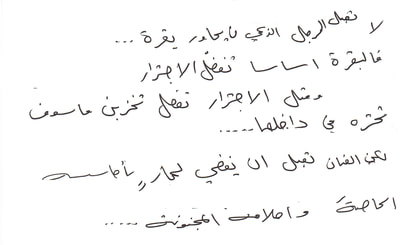 لا تقبل الرجل الذي يحاور بقرة ...
فالبقرة اساسا تفضّل الاجترار
ومثل الاجترار تفضل تخزين ما سوف
تجتره في داخلها .....
لكن الفنان تقبل ان يفضي لحمارٍ
الخاصة واحلامه المجنونة .....